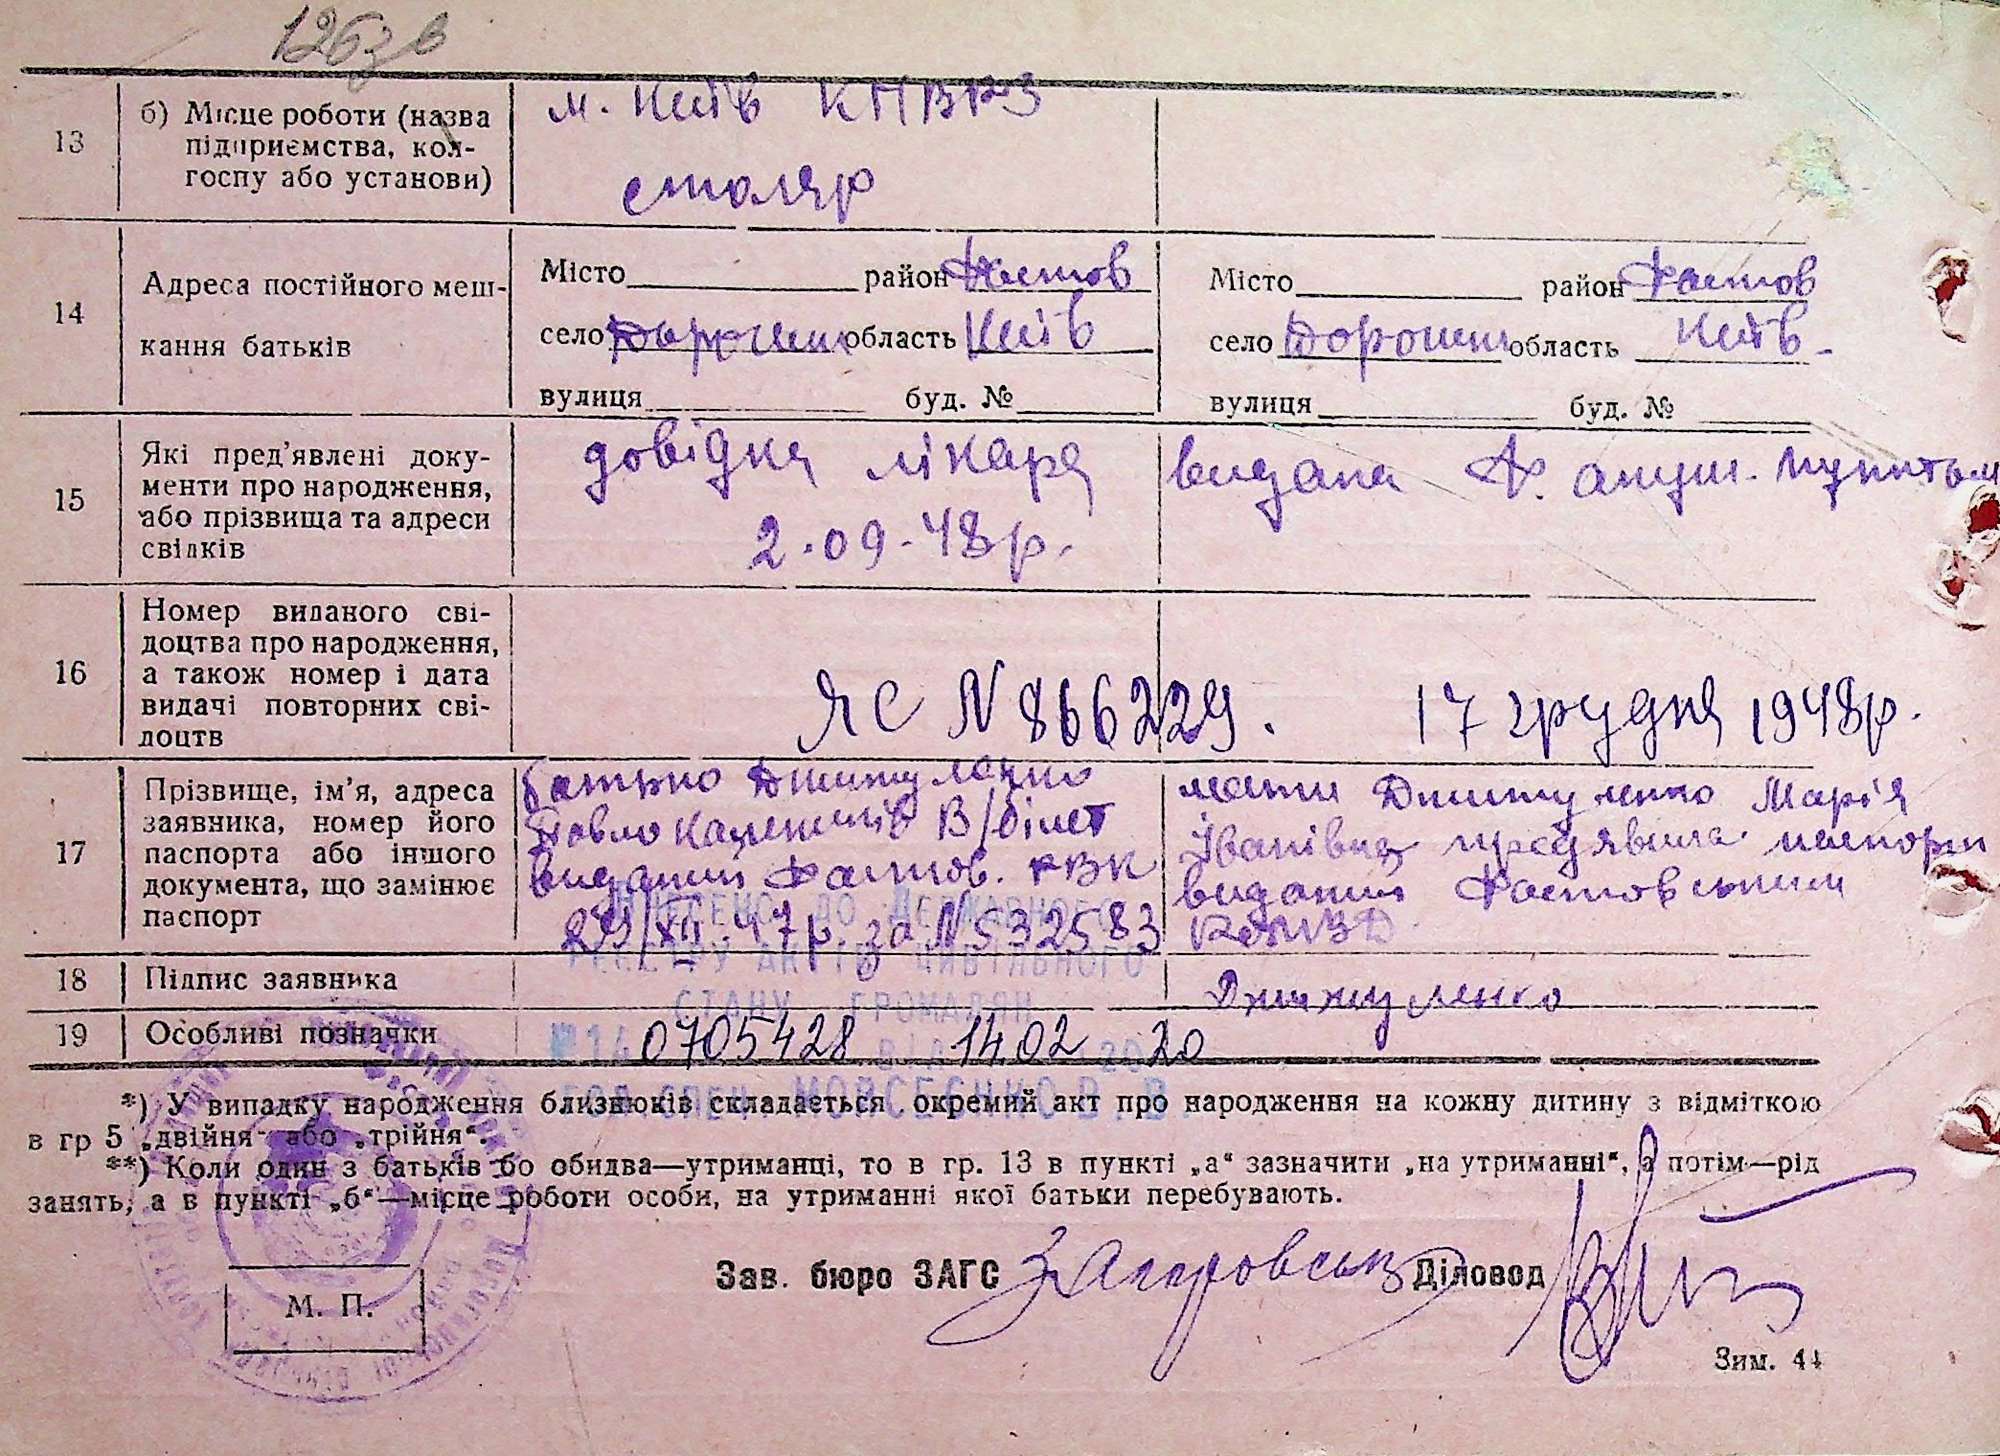 13 б) Місце роботи (назва підприємства, колгоспу або установи)
м. Київ КПВРЗ
столяр
14 Адреса постійного мешкання батьків
Місто район Фастов
село область Київ
вулиця буд. №
Місто район Фастов
село область Київ-
вулиця буд. №
15 Які пред'явлені документи про народження, або прізвища та адреси свідків
довідка лікаря видана Ф. акуш. пунктом
2.09.48р.
16 Номер виданого свідоцтва про народження, а також номер і дата видачі повторних свідоцтв
ЯС N 866229. 17 грудня 1948р.
17 Прізвище, ім'я, адреса заявника, номер його паспорта або іншого документа, що замінює паспорт
батько
Павло В/білет
виданий Фастов. РВК
29/XII.47р. за N 532583
мати Марія
Іванівна предявила паспорт
виданий Фастовським
ВНЕСЕНО ДО ДЕРЖАВНОГО
РЕЄСТРУ АКТІВ ЦИВІЛЬНОГО
СТАНУ ГРОМАДЯН
18 Підпис заявника
19 Особливі позначки
0705428 14.02 2020
МОЙСЕЄНКО В. В.
*) У випадку народження близнюків складається окремий акт про народження на кожну дитину з відміткою
в гр 5 „двійня“ або „трійня“.
**) Коли один з батьків бо обидва—утриманці, то в гр. 13 в пункті „а“ зазначити „на утриманні“, а потім—рід
занять, а в пункті „б“—місце роботи особи, на утриманні якої батьки перебувають.
Зав. бюро ЗАГС Діловод
М. П.
Зим. 44